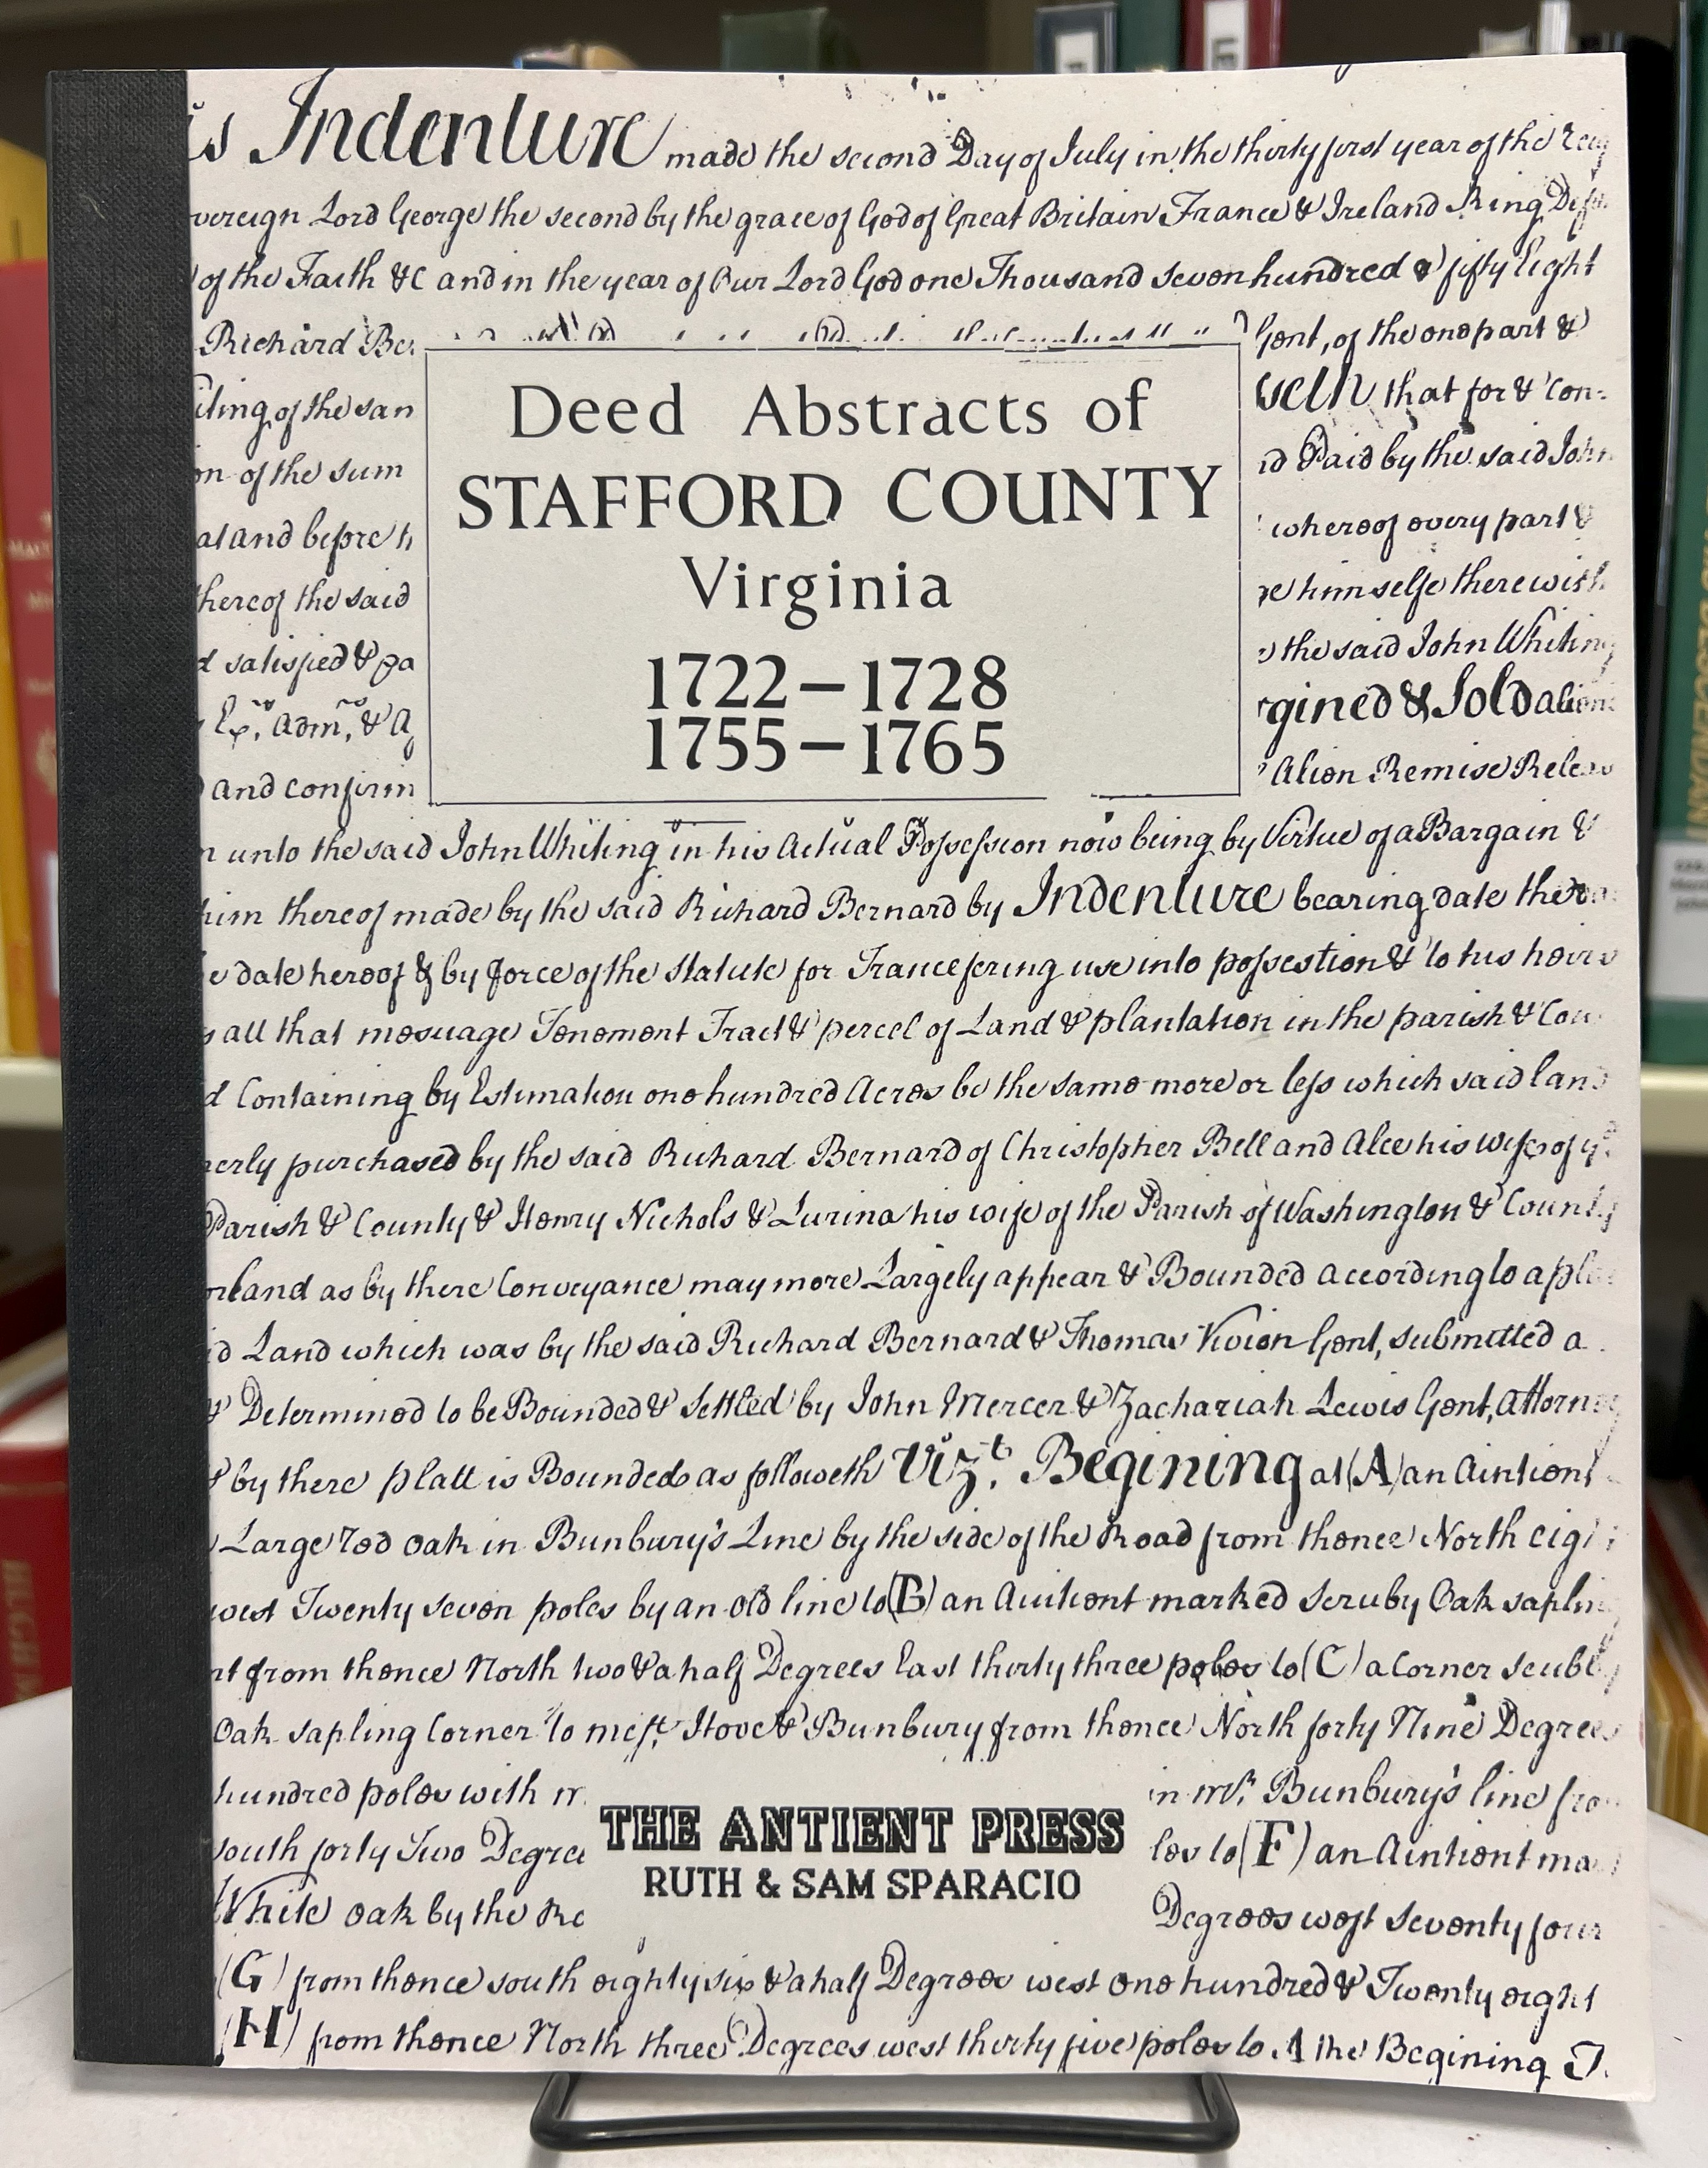 is Indenture made the second Day of July in the thirty first year of the Reig
vereign Lord George the second by the grace of God of Great Britain France & Ireland King Def
of the Faith &C and in the year of Our Lord God one Thousand seven hundred & fifty Eight
Richard Be Gent, of the one part &
Deed Abstracts of
STAFFORD COUNTY
Virginia
1722–1728
1755–1765
iting of the sam that for & Con-
on of the sum id Paid by the said John
al and before h whereof every part &
thereof the said re himselfe therewith
d satisfied & pa the said John Whiting
Exrs, Admrs, & A rgined & Sold alien
and confirm Alien Remise Releas
n unto the said John Whiting in his Actual Possession now being by Virtue of a Bargain &
him thereof made by the said Richard Bernard by Indenture bearing date the
e date hereof & by force of the Statute for Transfering use into possestion & to his heirs
s all that mesuage Tenement Tract & percel of Land & plantation in the parish & Cou
d Containing by Estimation one hundred Acres be the same more or less which said land
erly purchased by the said Richard Bernard of Christopher Bell and Alce his wife of ye
Parish & County & Henry Nichols & Lurina his wife of the Parish of Washington & County
orland as by there Conveyance may more Largely appear & Bounded according to a pla
id Land which was by the said Richard Bernard & Thomas Vivion Gent, submitted a
& Determined to be Bounded & Settled by John Mercer & Zachariah Lewis Gent, Attorn
& by there platt is Bounded as followeth Vizt. Begining at (A) an Aintient
Large red oak in Bunbury's Line by the side of the Road from thence North eigh
west Twenty seven poles by an old line to (B) an Aintient marked scruby Oak saplin
nt from thence North two & a half Degrees East thirty three poles to (C) a Corner scub
Oak sapling Corner to messrs. Hove & Bunbury from thence North forty Nine Degrees
hundred poles with m in mr. Bunbury's line fro
south forty Two Degree les to (F) an Aintient ma
White oak by the Ro Degrees west seventy four
THE ANTIENT PRESS
RUTH & SAM SPARACIO
(G) from thence south eighty six & a half Degrees west one hundred & Twenty eight
(H) from thence North three Degrees west thirty five poles to A the Begining T